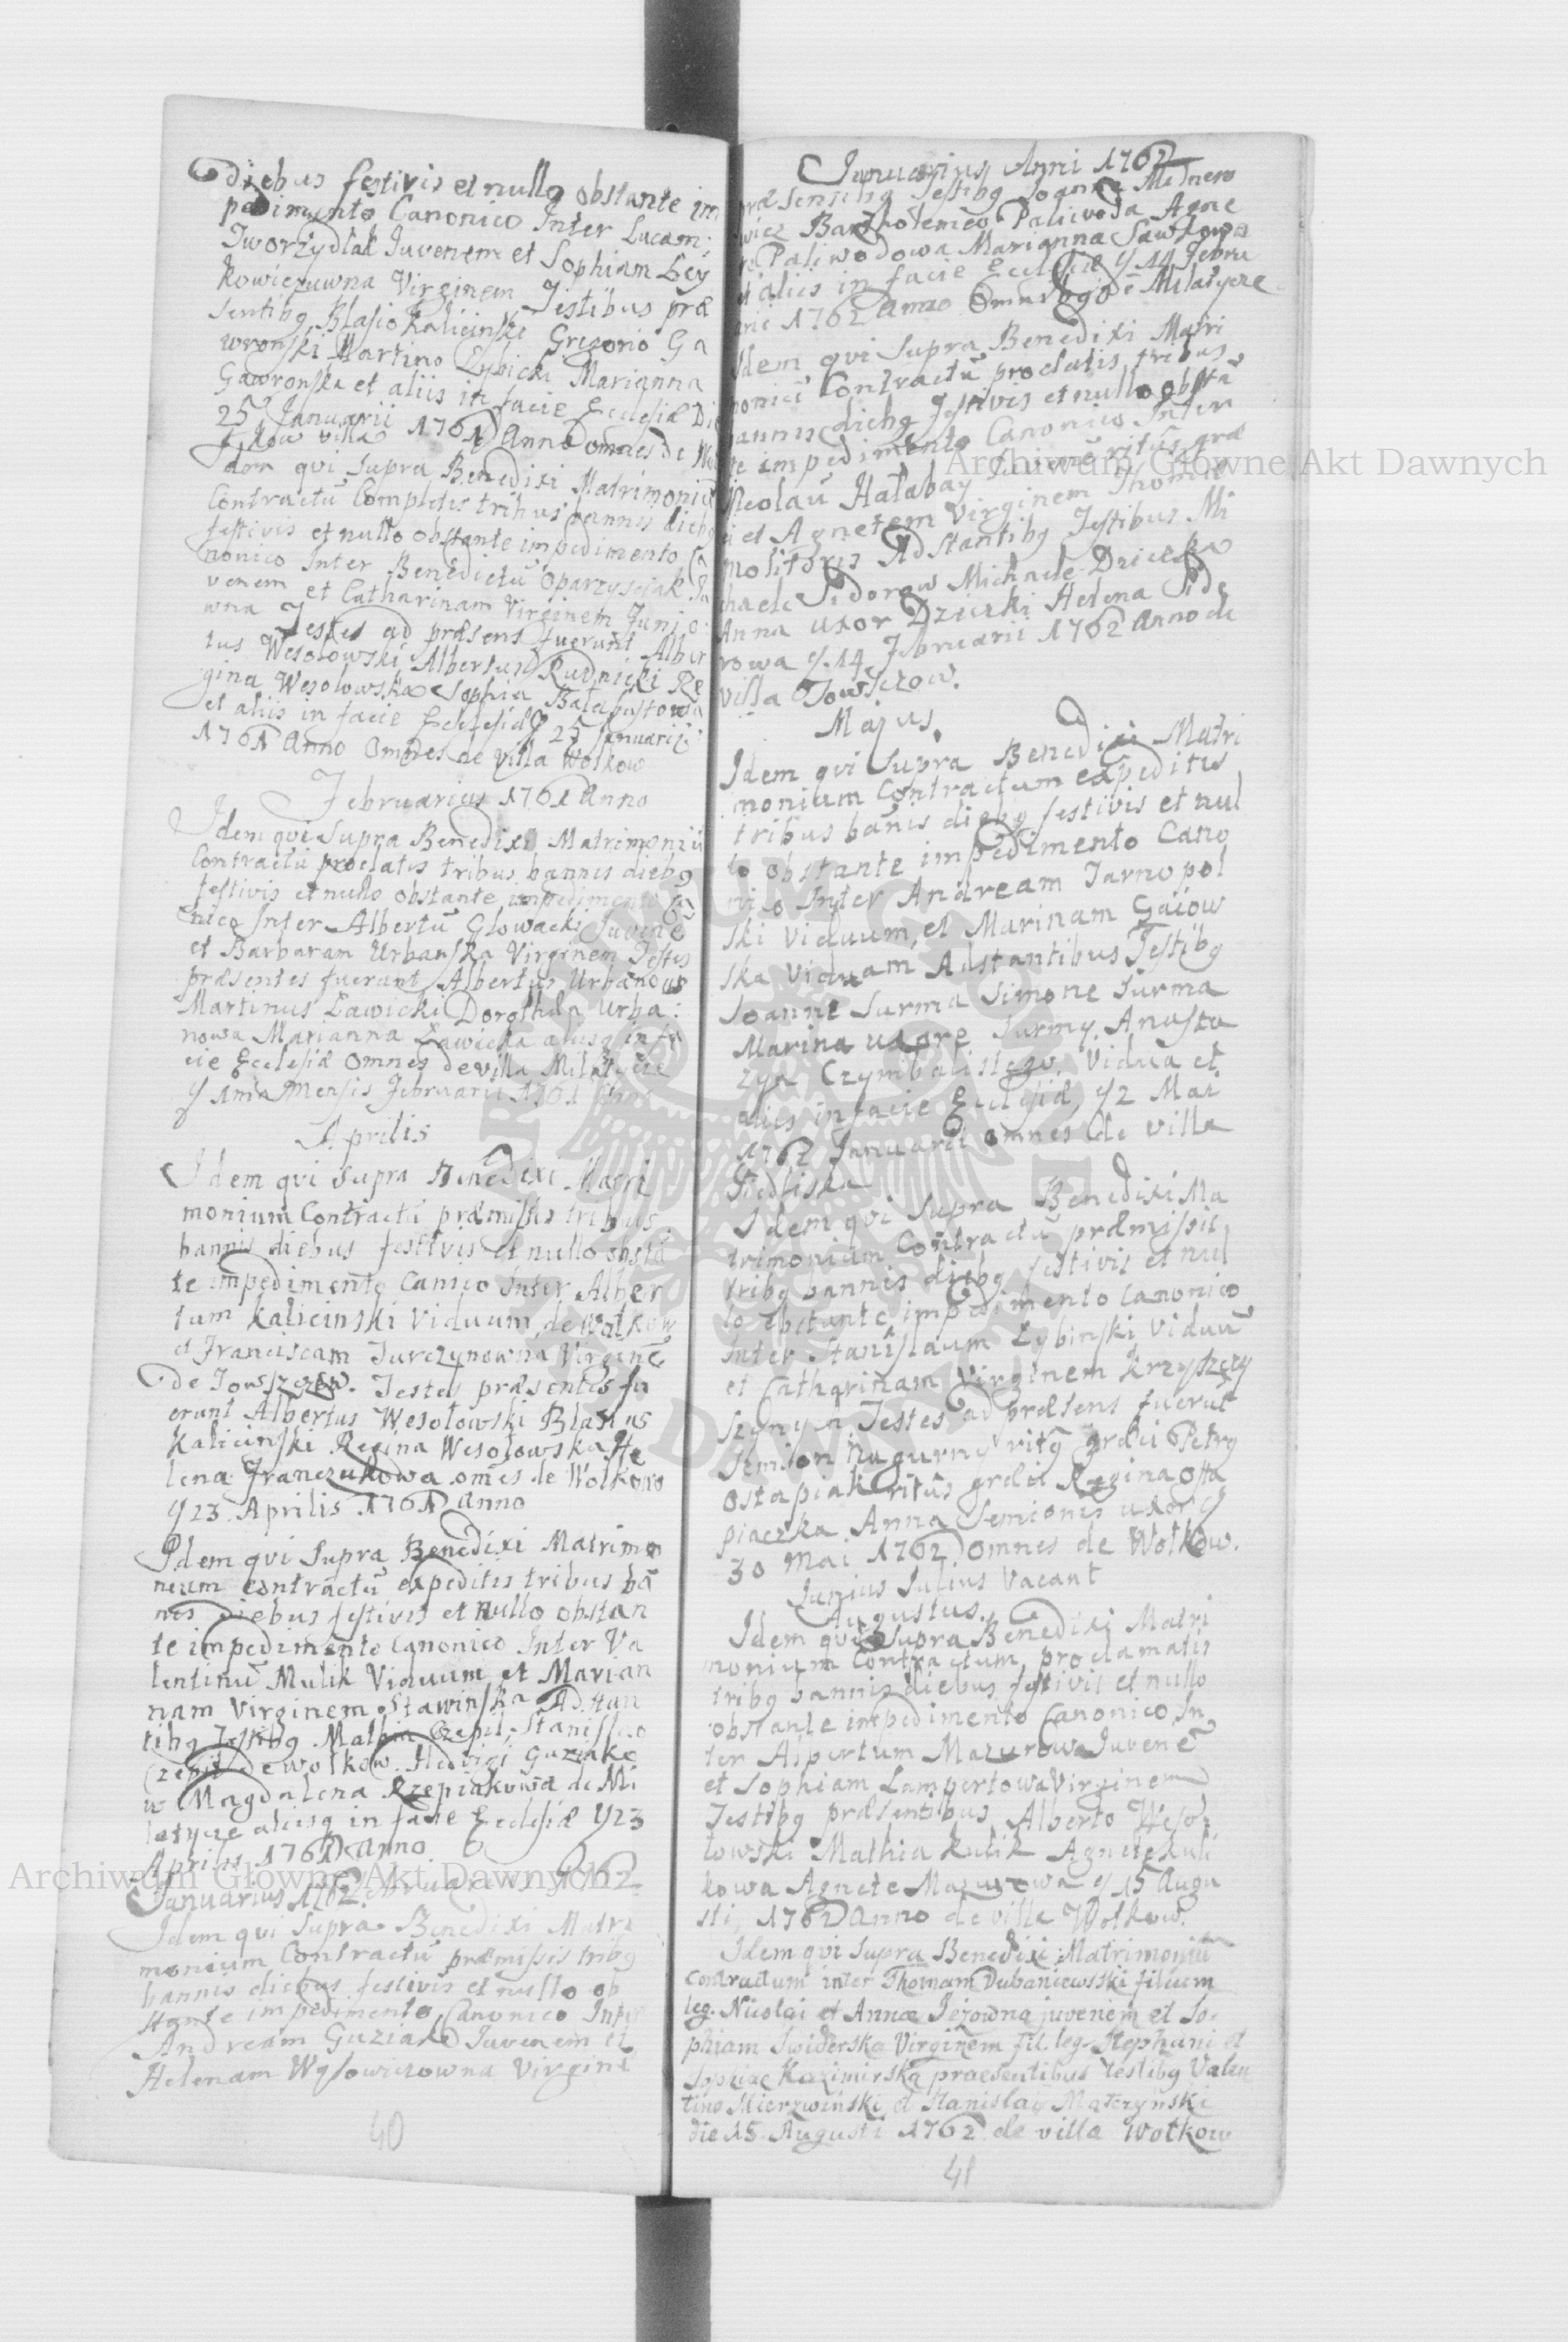 diebus festivis et nullo obstante im
pedimento Canonico Inter Lucam
Tworzydlak Iuvenem et Sophiam Ley
kowiczuwna Virginem Testibus præ
sentibg Blasio Kalicinski Gregorio Ga
wronski Martino Lybicki Marianna
Gawronska et aliis in facie Ecclesiæ Die
25 Januarii 1761 Anno omnes de Wo
łkow villa
Idem qui supra Benedixi Matrimoniū
Contractū Completis tribus bannis diebg
festivis et nullo obstante impedimento Ca
nonico Inter Benedictū Oparzysciak Iu
venem et Catharinam Virginem
wna Testes ad præsens fuerunt Alber
tus Wesołowski Albertus Rudnicki Re
gina Wesolowska Sophia Bałabustowa
et aliis in facie Ecclesiæ y 25 Januarii
1761 Anno Omnes de villa Wołkow
Februarius 1761 Anno
Idem qui supra Benedixi Matrimoniū
Contractū proclatis tribus bannis diebg
festivis et nullo obstante impedimento Ca
nico Inter Albertū Glowacki Iuvenē
et Barbaram Urbanska Virginem Testes
præsentes fuerant Albertus Urbanows
Martinus Ławicki Dorothea Urba:
nowa Marianna Ławicka aliisq in fa
cie Ecclesiæ Omnes de villa Milatycze
y 1ma Mensis Februarii 1761 Anno
Aprilis
Idem qui supra Benedixi Matri
monium Contractū præmissis tribus
bannis diebus festivis et nullo obstā
te impedimento Canico Inter Alber
tum Kalicinski Viduum de Wołkow
et Franciscam Jurczynowna Virginē
de Towszczow. Testes præsentes fu
erunt Albertus Wesołowski Blasius
Kalicinski Regina Wesolowska He
lena Franczukowa omes de Wołkow
y 23 Aprilis 1761 Anno
Idem qui supra Benedixi Matrimo
nium contractū expeditis tribus bā
nis diebus festivis et nullo obstan
te impedimento Canonico Inter Va
lentinū Mulik Viduum et Marian
nam Virginem Stawinska Adstan
tibg Testibg Czepil Stanislao
Czepil de Wołkow Hedvigi
w Magdalena Rzepiakowa de Mi
latycze aliisq in facie Ecclesiæ y 23
Aprilis 1761 Anno
Januarius 1762. Februarius 1762
Idem qui supra Benedixi Matri
monium Contractū præmissis tribg
bannis diebus festivis et nullo ob
stante impedimento Canonico Inter
Andream Guziak Iuvenem et
Helenam Wąsowiczowna Virginē
40
Januarius Anni 1762
præsentibg Testibg Joanne
wicz Bartholemeo Paliwoda Agne
te Paliwodowa Marianna Sawkowa
et aliis in facie Ecclesiæ y 14 Febru
arii 1762 Anno Omnibg de Milatycze
Idem qui supra Benedixi Matri
monii Contractū proclatis tribus
bannis diebg festivis et nullo obstā
te impedimento Canonico Inter
Nicolaū Hałabay Iuvenē ritūs græ
ci et Agnetem Virginem Thomæ
molitoris Adstantibg Testibus Mi
chaele Sidorow Michaele Dziecko
Anna uxor Dzieczki Helena Sido
rowa y 14 Februarii 1762 Anno de
villa Towszczow.
Majus.
Idem qui supra Benedixi Matri
monium Contractum expeditis
tribus banis diebg festivis et nul
lo obstante impedimento Cano
nico Inter Andream Tarnopol
ski Viduum, et Marinam Gaiow
ska Viduam Adstantibus Testibg
Joanne Surma Simone Surma
Marina uxore Surmy. Anasta
zya Czymbalistego Vidua et
aliis in facie Ecclesiæ, y 2 Mai
1762 Januarii omnes de villa
Siedliska
Idem qui supra Benedixi Ma
trimonium Contractū præmissis
tribg bannis diebg festivis et nul
lo obstante impedimento Canonico
Inter Stanislaum Lybinski Viduū
et Catharinam Virginem Krzyszczy
szynyn Testes ad præsens fuerūt
Semion Nagurny ritg græci Petrg
Ostapiak ritūs græci Regina Osta
piaczka Anna Semionis uxor y
30 Mai 1762 Omnes de Wołkow.
Junius Julius Vacant
Augustus.
Idem qui supra Benedixi Matri
monium Contractum, proclamatis
tribg bannis diebus festivis et nullo
obstante impedimento Canonico In
ter Albertum Mazurowa Juvenē
et Sophiam Lampertowa Virginem
Testibg præsentibus Alberto Weso
łowski Mathia Kulik Agnete Kuli
kowa Agnete Mazurowa y 15 Augu
sti 1762 Anno de villa Wołkow.
Idem qui supra Benedixi Matrimoniū
contractum inter Thomam Dubaniewsski filium
leg. Nicolai et Annæ Jeżowna juvenem et So-
phiam Świderska Virginem fil. leg. Stephani et
Sophiae Kazimirska praesentibus testibg Valen
tino Mierzwinski, et Stanislao Matczynski
die 15 Augusti 1762 de villa Wołkow
41
Archiwum Główne Akt Dawnych
Archiwum Główne Akt Dawnych